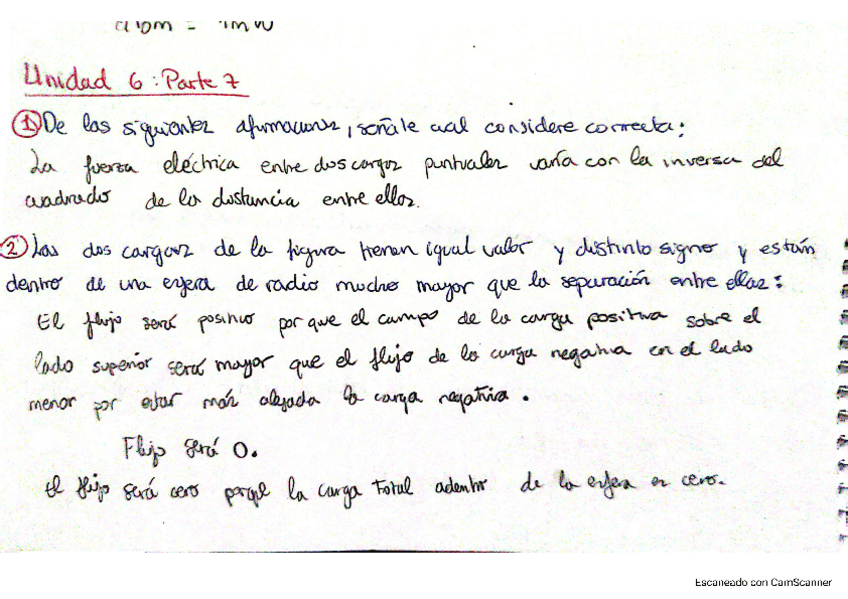 Unidad 6: Parte 7
① De las siguientes afirmaciones, señale cual considere correcta:
La fuerza eléctrica entre dos cargas puntuales varía con la inversa del
cuadrado de la distancia entre ellas.
② Las dos cargas de la figura tienen igual valor y distinto signo y están
dentro de una esfera de radio mucho mayor que la separación entre ellas:
El flujo será positivo porque el campo de la carga positiva sobre el
lado superior será mayor que el flujo de la carga negativa en el lado
menor por estar más alejada la carga negativa.
Flujo será 0.
El flujo será cero porque la carga total adentro de la esfera es cero.
Escaneado con CamScanner